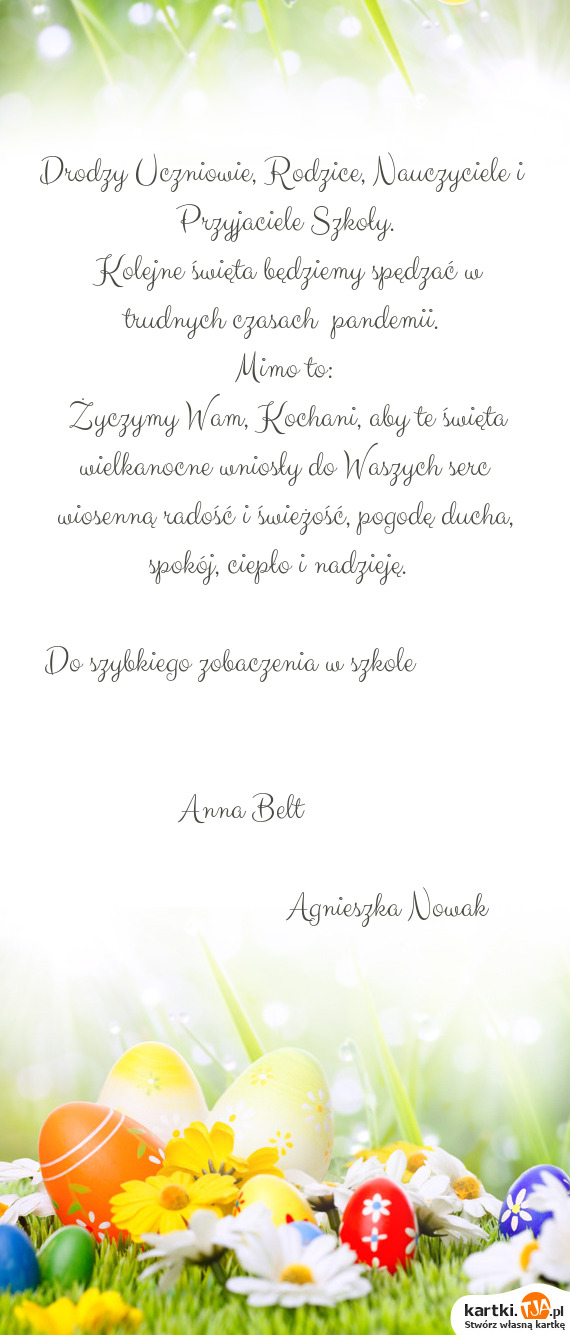 Drodzy Uczniowie, Rodzice, Nauczyciele i
Przyjaciele Szkoły.
Kolejne święta będziemy spędzać w
trudnych czasach pandemii.
Mimo to:
Życzymy Wam, Kochani, aby te święta
wielkanocne wniosły do Waszych serc
wiosenną radość i świeżość, pogodę ducha,
spokój, ciepło i nadzieję.
Do szybkiego zobaczenia w szkole
Anna Belt
Agnieszka Nowak
kartki.TJA.pl
Stwórz własną kartkę